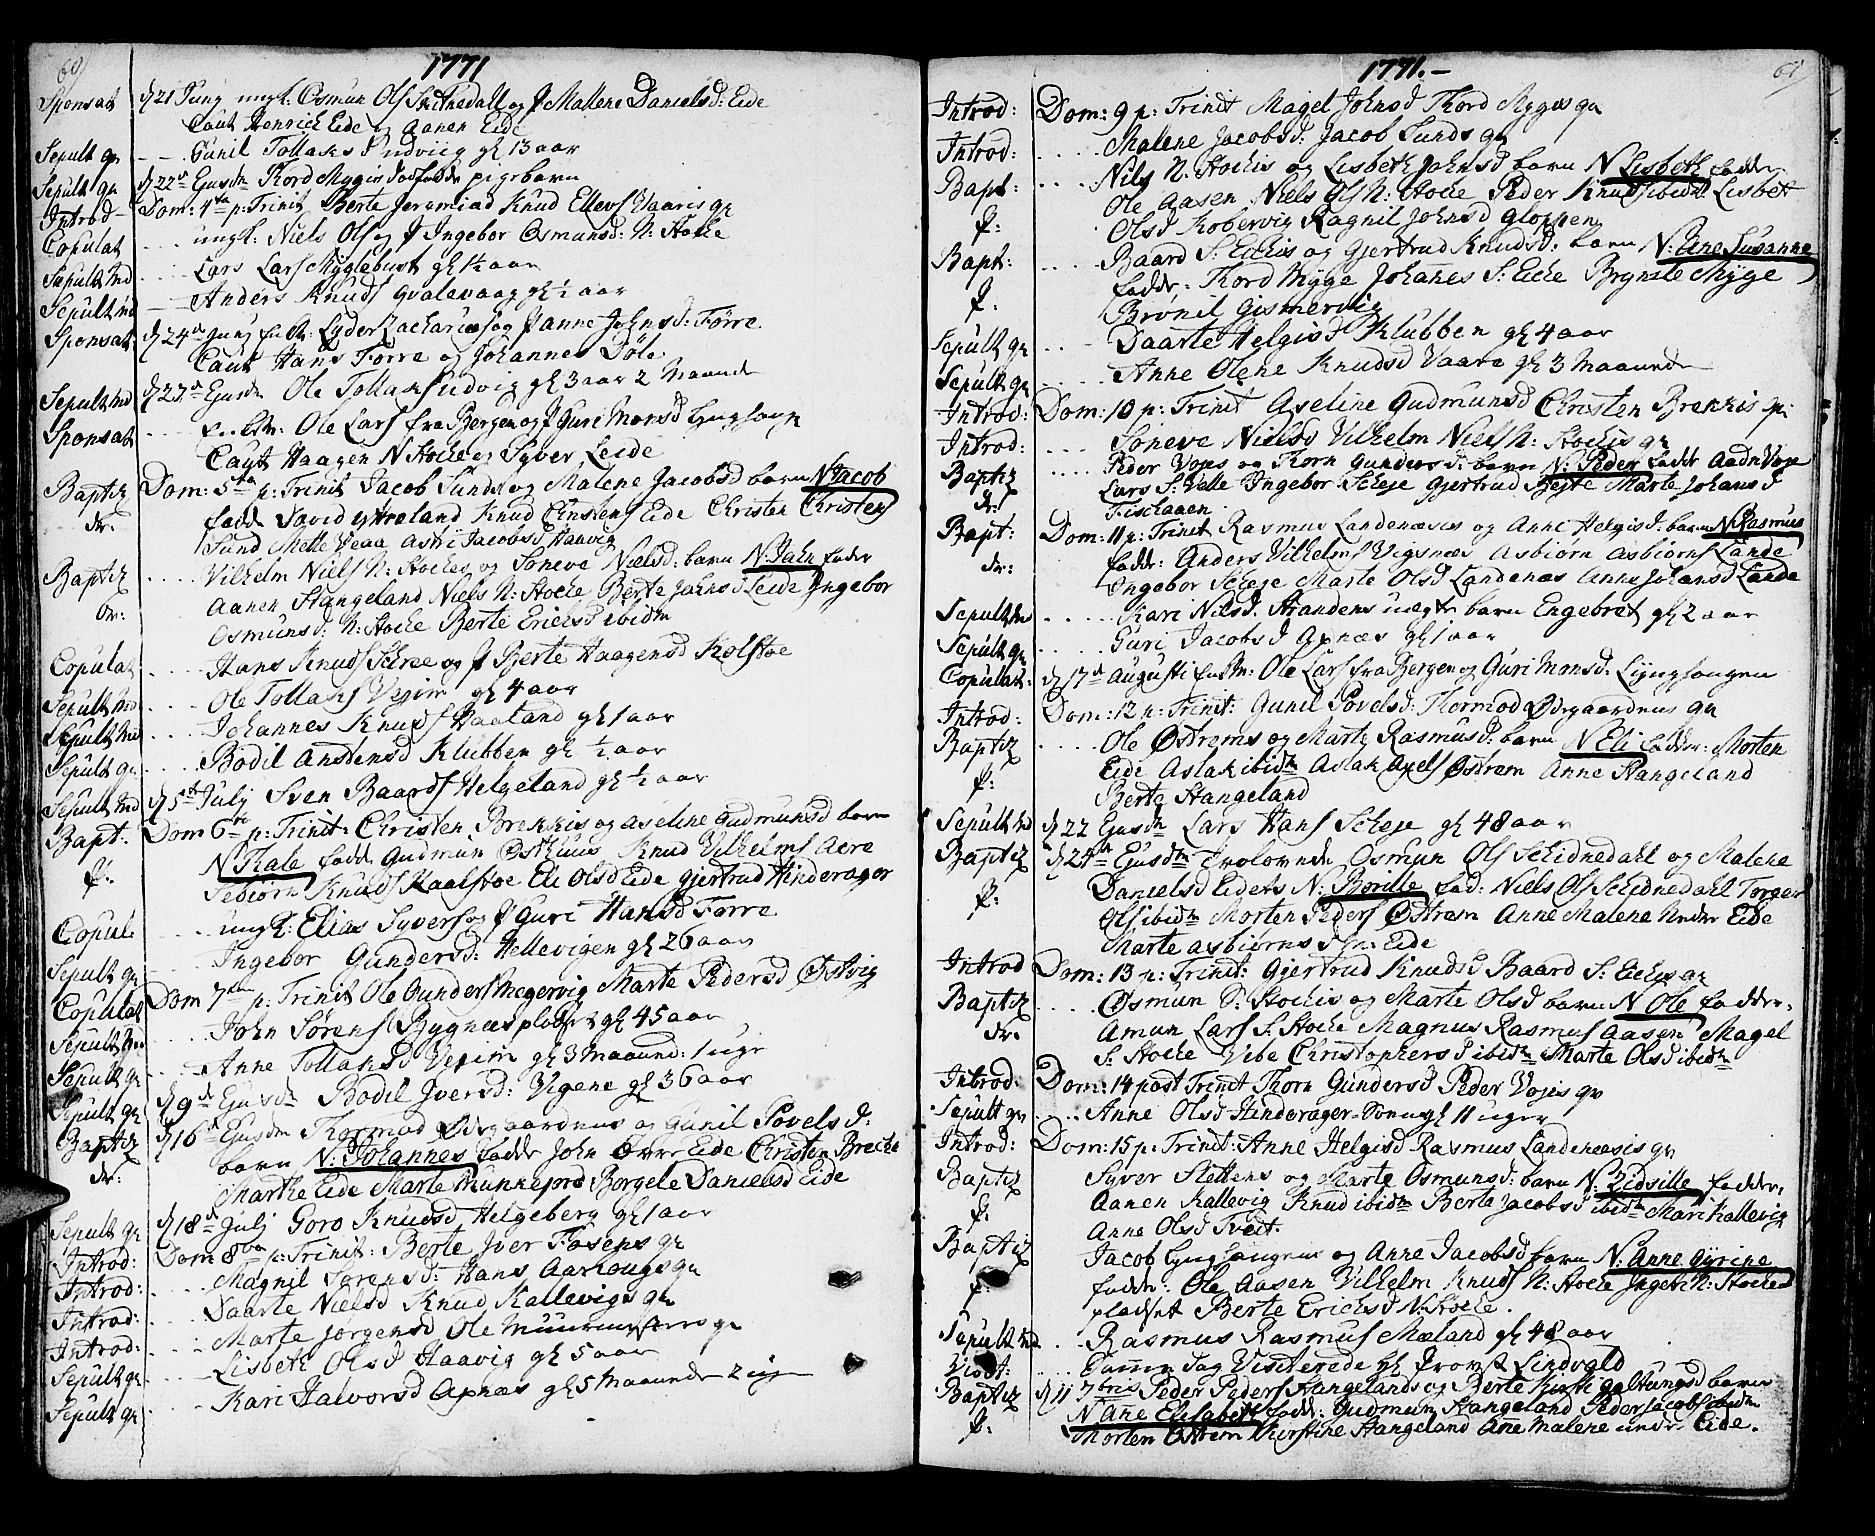 60
1771
Sponsat d 21 Jung ungk: Osmun Ols Skitnedall og P Mallene Danielsd: Eide
Caut Henrich Eide og Aanen Eide
Sepult qv - - - Gunil Tollaks d udviig gl 13 aar
Sepult qv d 22 Ejusdm Tord Mygis dødfødde pigebarn
Introd - Dom: 4ta p: Trinit Berte Jeremiad Knud Ellevs Vaaris qv
Copulat - - - ungk: Niels Ols og P Ingebor Osmunsd: N: Stocke
Sepult Md - - - Lars Lars Myglebust gl 1½ aar
Sepult Md - - - Anders Knuds Gvalevaag gl ½ aar
Sponsat d 24 Jung Lyder Zacharias og P Anne Johnsd: Førre
Caut Hans Førre og Johannes Døle
Sepult Md Ejusdm Ole Tollaks udvig gl 3 aar 2 Maaned
Sponsat - - - Ole Lars fra Bergen og P Guri Monsd Lyngsong
Caut Haagen N Stocke og Syver Leide
Baptiz Dom: 5ta p: Trinit Jacob Sunds og Malene Jacobsd barn N Jacob
fadd David ytreland Knud Einstens Eide Christen Christens
Sund Mette Veaa Astri Jacobsd Haavig
Baptiz - - - Vilhelm Niels N: Stockes og Soneve Nielsd: barn N: John fadr
Aanen Stangeland Niels N: Stocke Berte Johnsd Leide Ingebor
Osmunsd: N: Stocke Berte Ericksd ibidm
Copulat - - - Hans Knuds Schree og P Berte Haagensd Kolstøe
Sepult Md - - - Ole Tollaks Vejim gl 4 aar
Sepult Md - - - Johannes Knuds Haaland gl 1 aar
Sepult qv - - - Bodil Andensd Klubben gl ½ aar
Sepult Md d 5 July Sven Baards Helgeland gl ½ aar
Bapt: Dom 6te p: Trinit: Christen Brekkis og Aseline Gudmunsd barn
P: N Tale fadd Gudmun Østhuus Knud Vilhelms Aere
Sebiørn Knuds Kaalstøe Eli Olsd Eide Gjertrud Hinderager
Copul. - - - ungk: Elias Syvers og P Guri Hansd Førre
Sepult qv - - - Ingebor Gundersd: Hellevigen gl 26 aar
Copulat Dom 7me p: Trinit Ole Gunders Megervig Marte Pedersd Østvig
Sepult - - - John Sørens Bygnes pladset gl 45 aar
Sepult qv - - - Anne Tollaksd Vejim gl 3 Maaned: 1 uge
Sepult qv d 9 Ejusdm Bodil Jversd: Vigene gl 36 aar
Baptiz d 16 Ejusdm Thormod Ødegaardens og Gunil Povelsd:
barn N: Johannes fadde John Øvre Eide Christen Brecke
Marthe Eide Marte Munkejord Borgele Danielsd Eide
Sepult qv d 18 July Goro Knudsd Helgeberg gl 1 aar
Introd: Dom 8va p: Trinit: Berte Jver Fosens qv
Introd: - - - Magnil Sørensd: Hans Aarhougs qv
Introd: - - - Daarte Nielsd Knud Kallevigs qv
Introd: - - - Marte Jørgensd Ole Muurmesters qv
Sepult qv - - - Lisbeth Olsd Haavig gl 5 aar
Sepult qv - - - Kari Halvorsd Apnæs gl 5 Maaneder 2 uger
1771.-
61
Introd: Dom: 9 p: Trinit Magel Johnsd Thord Mygis qv
Introd: - - - Malene Jacobsd: Jacob Sunds qv
Bapt: - - - Nils N. Stockis og Lisbeth Johnsd barn N Lisbeth fadder
P: Ole Aasen Niels Ols N: Stocke Peder Knuds ibidm Lisbet
Olsd Kobervig Ragnil Johnsd Gloppen
Bapt: - - - Baard S. Eickis og Gjertrud Knudsd: barn N: Ane Susanne
P: faddr. Thord Mygge Johanes S: Eicke Brynile Mygge
Brønil Gismervig
Sepult qv - - - Daarte Helgisd Klubben gl 4 aar
Sepult qv - - - Anne Olene Knudsd Vaare gl 3 Maaneder
Introd: Dom: 10 p: Trinit Aseline Gudmunsd Christen Brekkis qv
Introd: - - - Soneve Nielsd Vilhelm Niels N: Stockis qv
Baptiz - - - Peder Vojes og Thorn Gundersd: barn N: Peder fadd Aadn Voje
dr: Lars S: Valle Ingebor Scheje Gjertrud Bøjte Marte Johansd
Fischaaen.
Bapt: Dom: 11 p: Trinit Rasmus Landenæses og Anne Helgisd: barn N: Rasmus
dr: fadder: Anders Vilhelms Vigsnæs Asbiørn Asbiørns Lande
Ingebor Scheje Marte Olsd Landenæs Anne Johansd Lande
Sepult Md - - - Kari Nilsd Strandens uægte barn Engebret gl 2 aar
Sepult qv - - - Guri Jacobsd Apnæs gl 1 aar
Copulat: d 17 Augusti Ole Lars fra Bergen og Guri Monsd: Lyngsongen
Introd: Dom: 12 p: Trinit: Gunil Povelsd: Thormod Ødegaardens qv
Baptiz - - - Ole Østrems og Marte Rasmusd: barn N Eli fadder: Morten
P: Eide Aslak ibidm Aslak Axels Østrem Anne Stangeland
Berte Stangeland
Sepult Md d 22 Ejusdm Lars Hans Scheje gl 48 aar
Baptiz d 24 Ejusdm trolovede Osmun Ols Schidnedahl og Malene
P: Danielsd Eidets N: Borille fad: Niels Ols Schidnedahl Torger
Ols ibidm Morten Peders Østrem Anne Malene Under Eide
Marte Asbiørnsd Eide
Introd Dom: 13 p: Trinit: Gjertrud Knudsd Baard S: Eickis qv
Baptiz - - - Osmun S: Stockis og Marte Olsd barn N Ole fadder.
dr. Amun Lars S: Stocke Magnus Rasmus Aasen Magel
S: Stocke Vibe Christophersd ibidm Marte Olsd ibidm
Introd: Dom: 14 post Trinit Thorn Gundersd Peder Vojes qv
Sepult qv - - - Anne Olsd Hinderager gl 11 uger
Introd: Dom: 15 p: Trinit: Anne Helgisd Rasmus Landenæsis qv
Baptiz Syver Stettens og Marte Osmunsd: barn N: Zidsille fadder.
P. Aanen Kallevig Knud ibidm Berte Jacobsd ibidm Mari Kallevig
Anne Olsd Tveit.
Baptiz Jacob Lyngsongens og Anne Jacobsd barn N: Anne Gyrine
P: fadder: Ole Aasen Vilhelm Knuds N: Stocke Inger N: Stocke
pladset Berte Ericksd N: Stocke.
Sepult Md - - - Rasmus Rasmus Mæland gl 48 aar
Visit: - - - Samme dag Visiterede Hr Provst Lindvald
Baptiz d 11 7bris Peder Peders Stangelands og Berte Kirsti Galtungsd barn
P. N Ane Elisabeth fadd: Gudmun Stangeland Peder Jacobs ibidm
Morten Østrem Kirstine Stangeland Ane Malene under Eide.